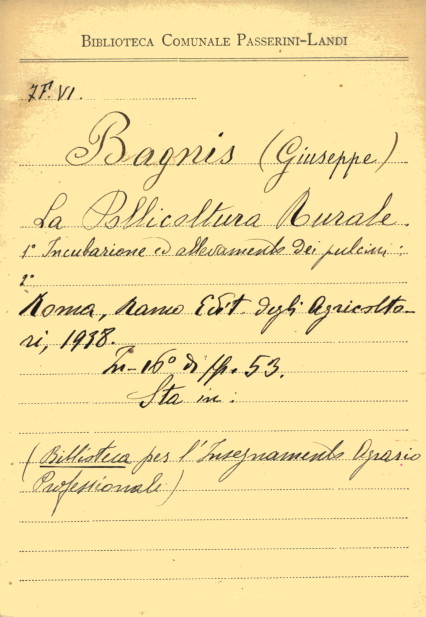 BIBLIOTECA COMUNALE PASSERINI-LANDI
7F. VI.
Bagnis (Giuseppe)
La Pollicoltura Rurale.
1° Incubazione ed allevamento dei pulcini:
2°
Roma, Ramo Edit. degli Agricolto-
ri, 1938.
In-16° di pp. 53.
Sta in:
(Biblioteca per l'Insegnamento Agrario
Professionale)